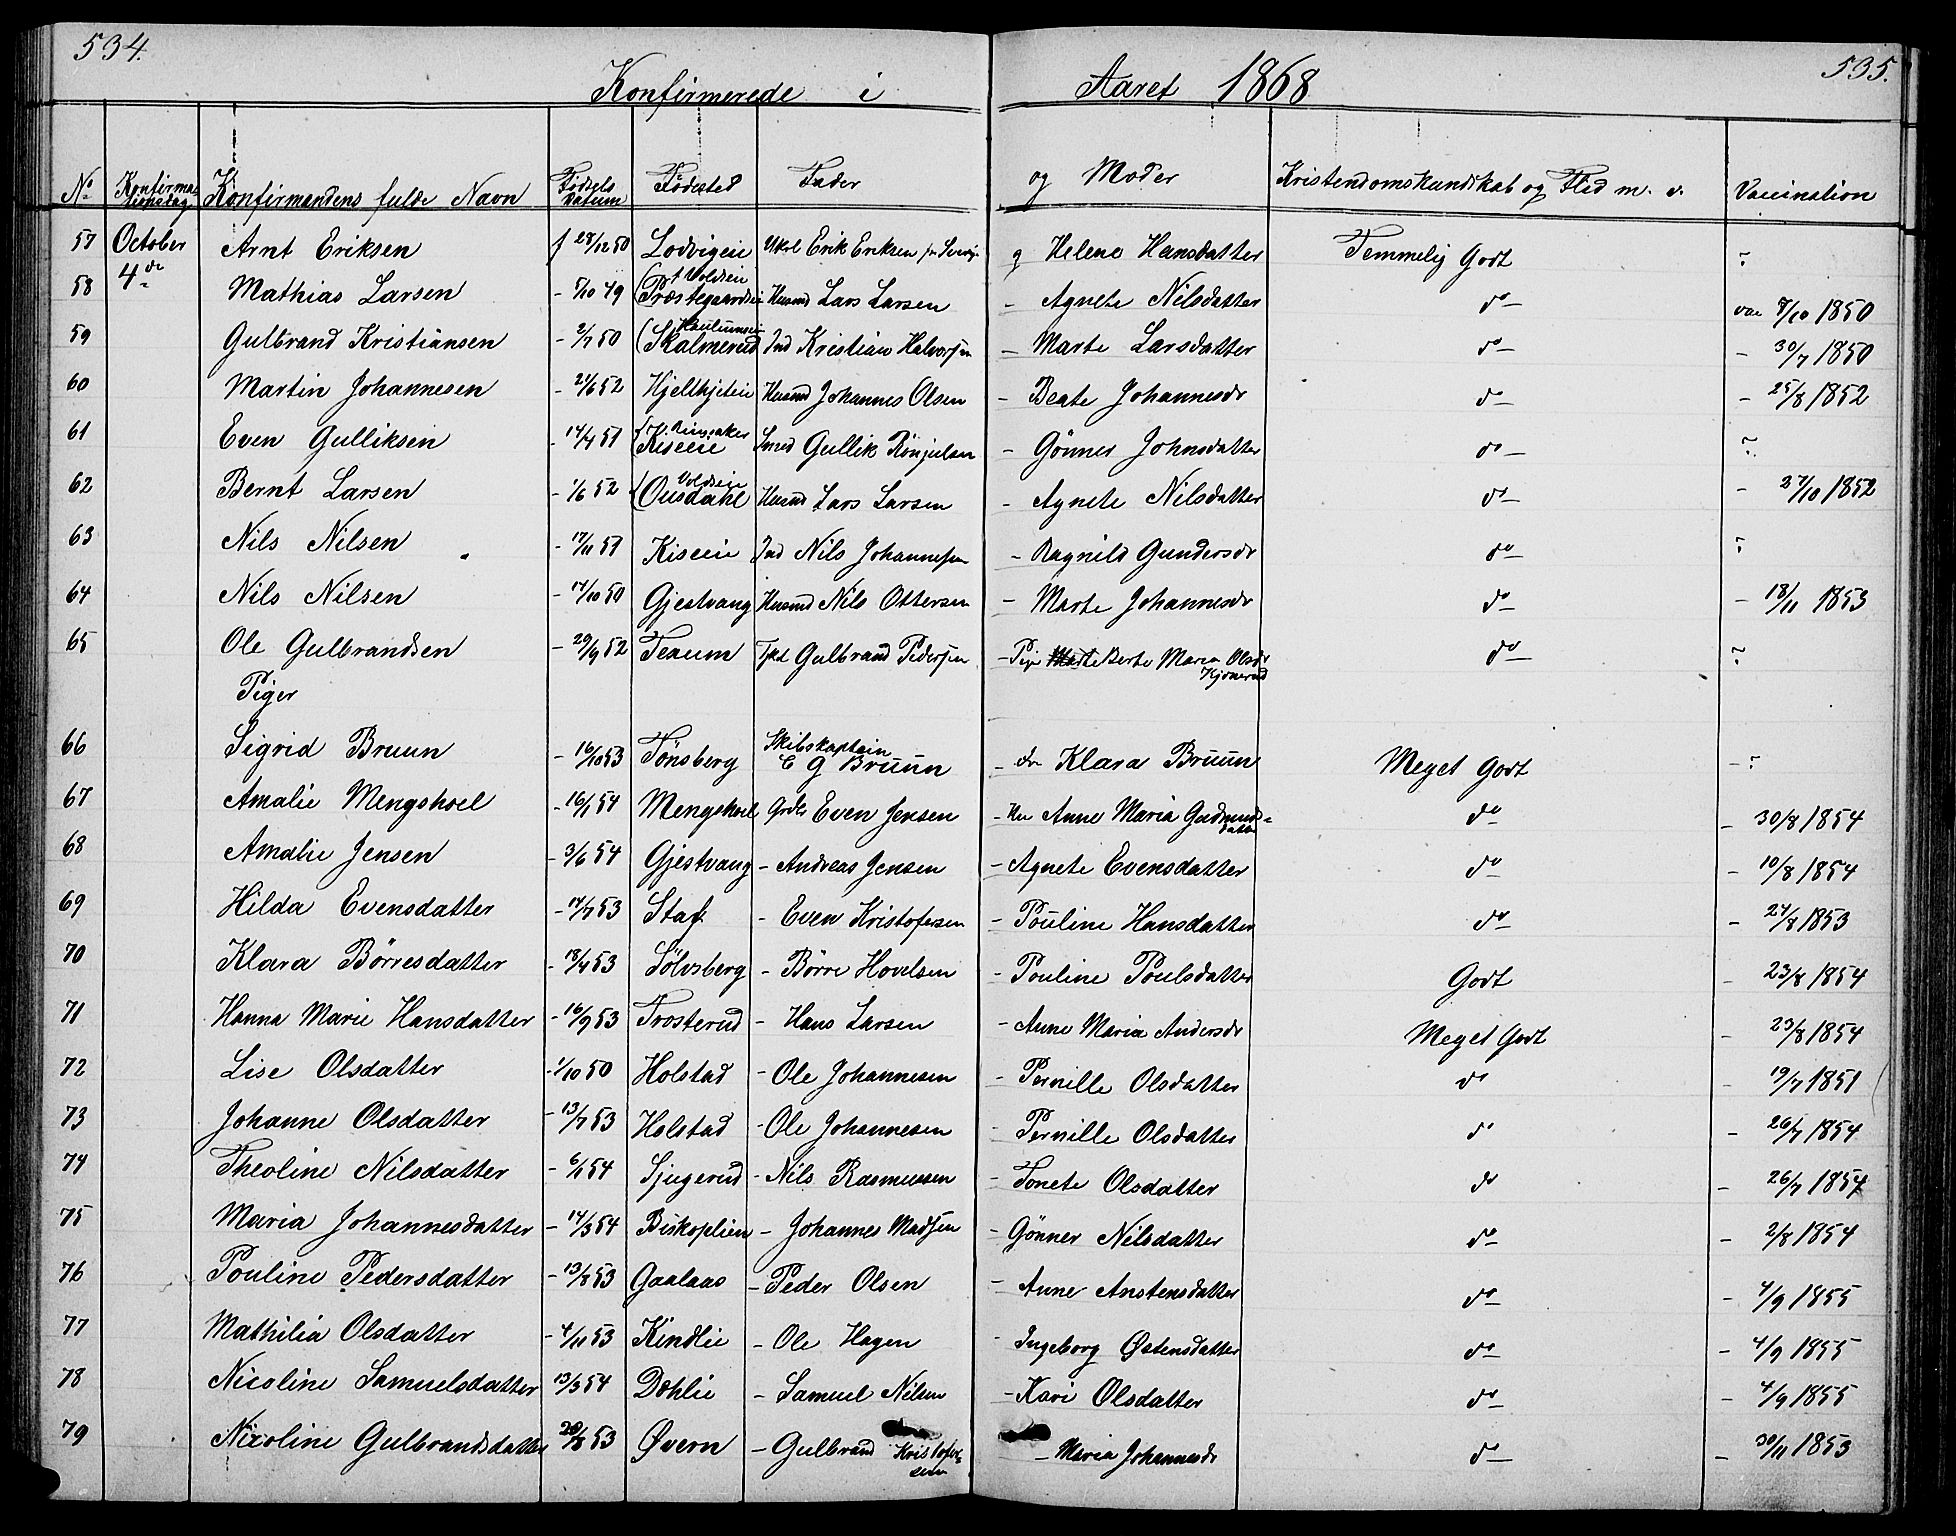 534.
535.
Konfirmerede i Aaret 1868
No Konfirmationsdag Konfirmandens fulde Navn Fødselsdatum Fødested Fader og Moder Kristendomskundskab og Flid m. v. Vaccination
57 October Arnt Eriksen f 28/12 50 Lodvigeie Erik Eriksen g Helene Hansdatter Temmelig Godt ?
58 4de Mathias Larsen - 5/10 49 (Voldseie Præstegaardseie Husmd Lars Larsen - Agnete Nilsdatter do vac 8/10 1850
59 Gulbrand Kristiansen - 2/7 50 (Skalmerud Ind Kristian Halvorsen - Marte Larsdatter do - 30/7 1850
60 Martin Johannesen - 21/6 52 Hjelthjteie Husmd Johannes Olsen - Beate Johannesdr do - 25/8 1852
61 Even Gulliksen - 14/4 51 (Ringsaker Kiseeie Smed Gullik Rönjulsen - Gönner Johnsdatter do ?
62 Bernt Larsen - 1/6 52 (Voldseie Ousdahl Husmd Lars Larsen - Agnete Nilsdatter do - 27/10 1852
63 Nils Nilsen - 17/11 51 Kiseeie Ind Nils Johannesen - Ragnild Gundersdr do ?
64 Nils Nilsen - 14/10 50 Gjestvang Husmd Nils Ottersen - Marte Johannesdr do - 18/11 1853
65 Ole Gulbrandsen - 29/9 52 Teaum Gulbrand Pedersen - Pige Marte Berte Maria Olsdr Kjonerud do ?
Piger
66 Sigrid Bruun - 16/10 53 Tönsberg Skibskaptein C G Bruun - Klara Bruun Meget Godt - ?
67 Amalie Mengshoel - 16/1 54 Mengshoel Grdbr Even Jensen - Anne Maria Gudmundsdatter do - 30/8 1854
68 Amalie Jensen - 3/6 54 Gjestvang - Andreas Jensen - Agnete Evensdatter do - 10/8 1854
69 Hilda Evensdatter - 14/7 53 Staf - Even Kristofersen - Pouline Hansdatter do - 24/8 1853
70 Klara Börresdatter - 18/4 53 Sölvsberg - Börre Hovelsen - Pouline Poulsdatter Godt - 23/8 1854
71 Hanna Marie Hansdatter - 16/9 53 Trosterud - Hans Larsen - Anne Maria Andersdr Meget Godt - 23/8 1854
72 Lise Olsdatter - 1/10 50 Holstad - Ole Johannesen - Pernille Olsdatter do - 19/7 1851
73 Johanne Olsdatter - 13/7 53 Holstad - Ole Johannesen - Pernille Olsdatter do - 26/7 1854
74 Theoline Nilsdatter - 6/1 54 Sjugerud - Nils Rasmussen - Tonete Olsdatter do - 26/7 1854
75 Maria Johannesdatter - 14/3 54 Biskoplien - Johannes Madsen - Gönner Nilsdatter do - 2/8 1854
76 Pouline Pedersdatter - 13/8 53 Gaalaas - Peder Olsen - Anne Anstensdatter do - 4/9 1855
77 Mathilia Olsdatter - 4/11 53 Kindlie - Ole Hagen - Ingeborg Østensdatter do - 4/9 1855
78 Nicoline Samuelsdatter 13/3 54 Dæhlie - Samuel Nilsen - Kari Olsdatter do - 4/9 1855
79 Nicoline Gulbrandsdatter 28/8 53 Øvern - Gulbrand Kristofersen - Maria Johannesdr do - 30/11 1853